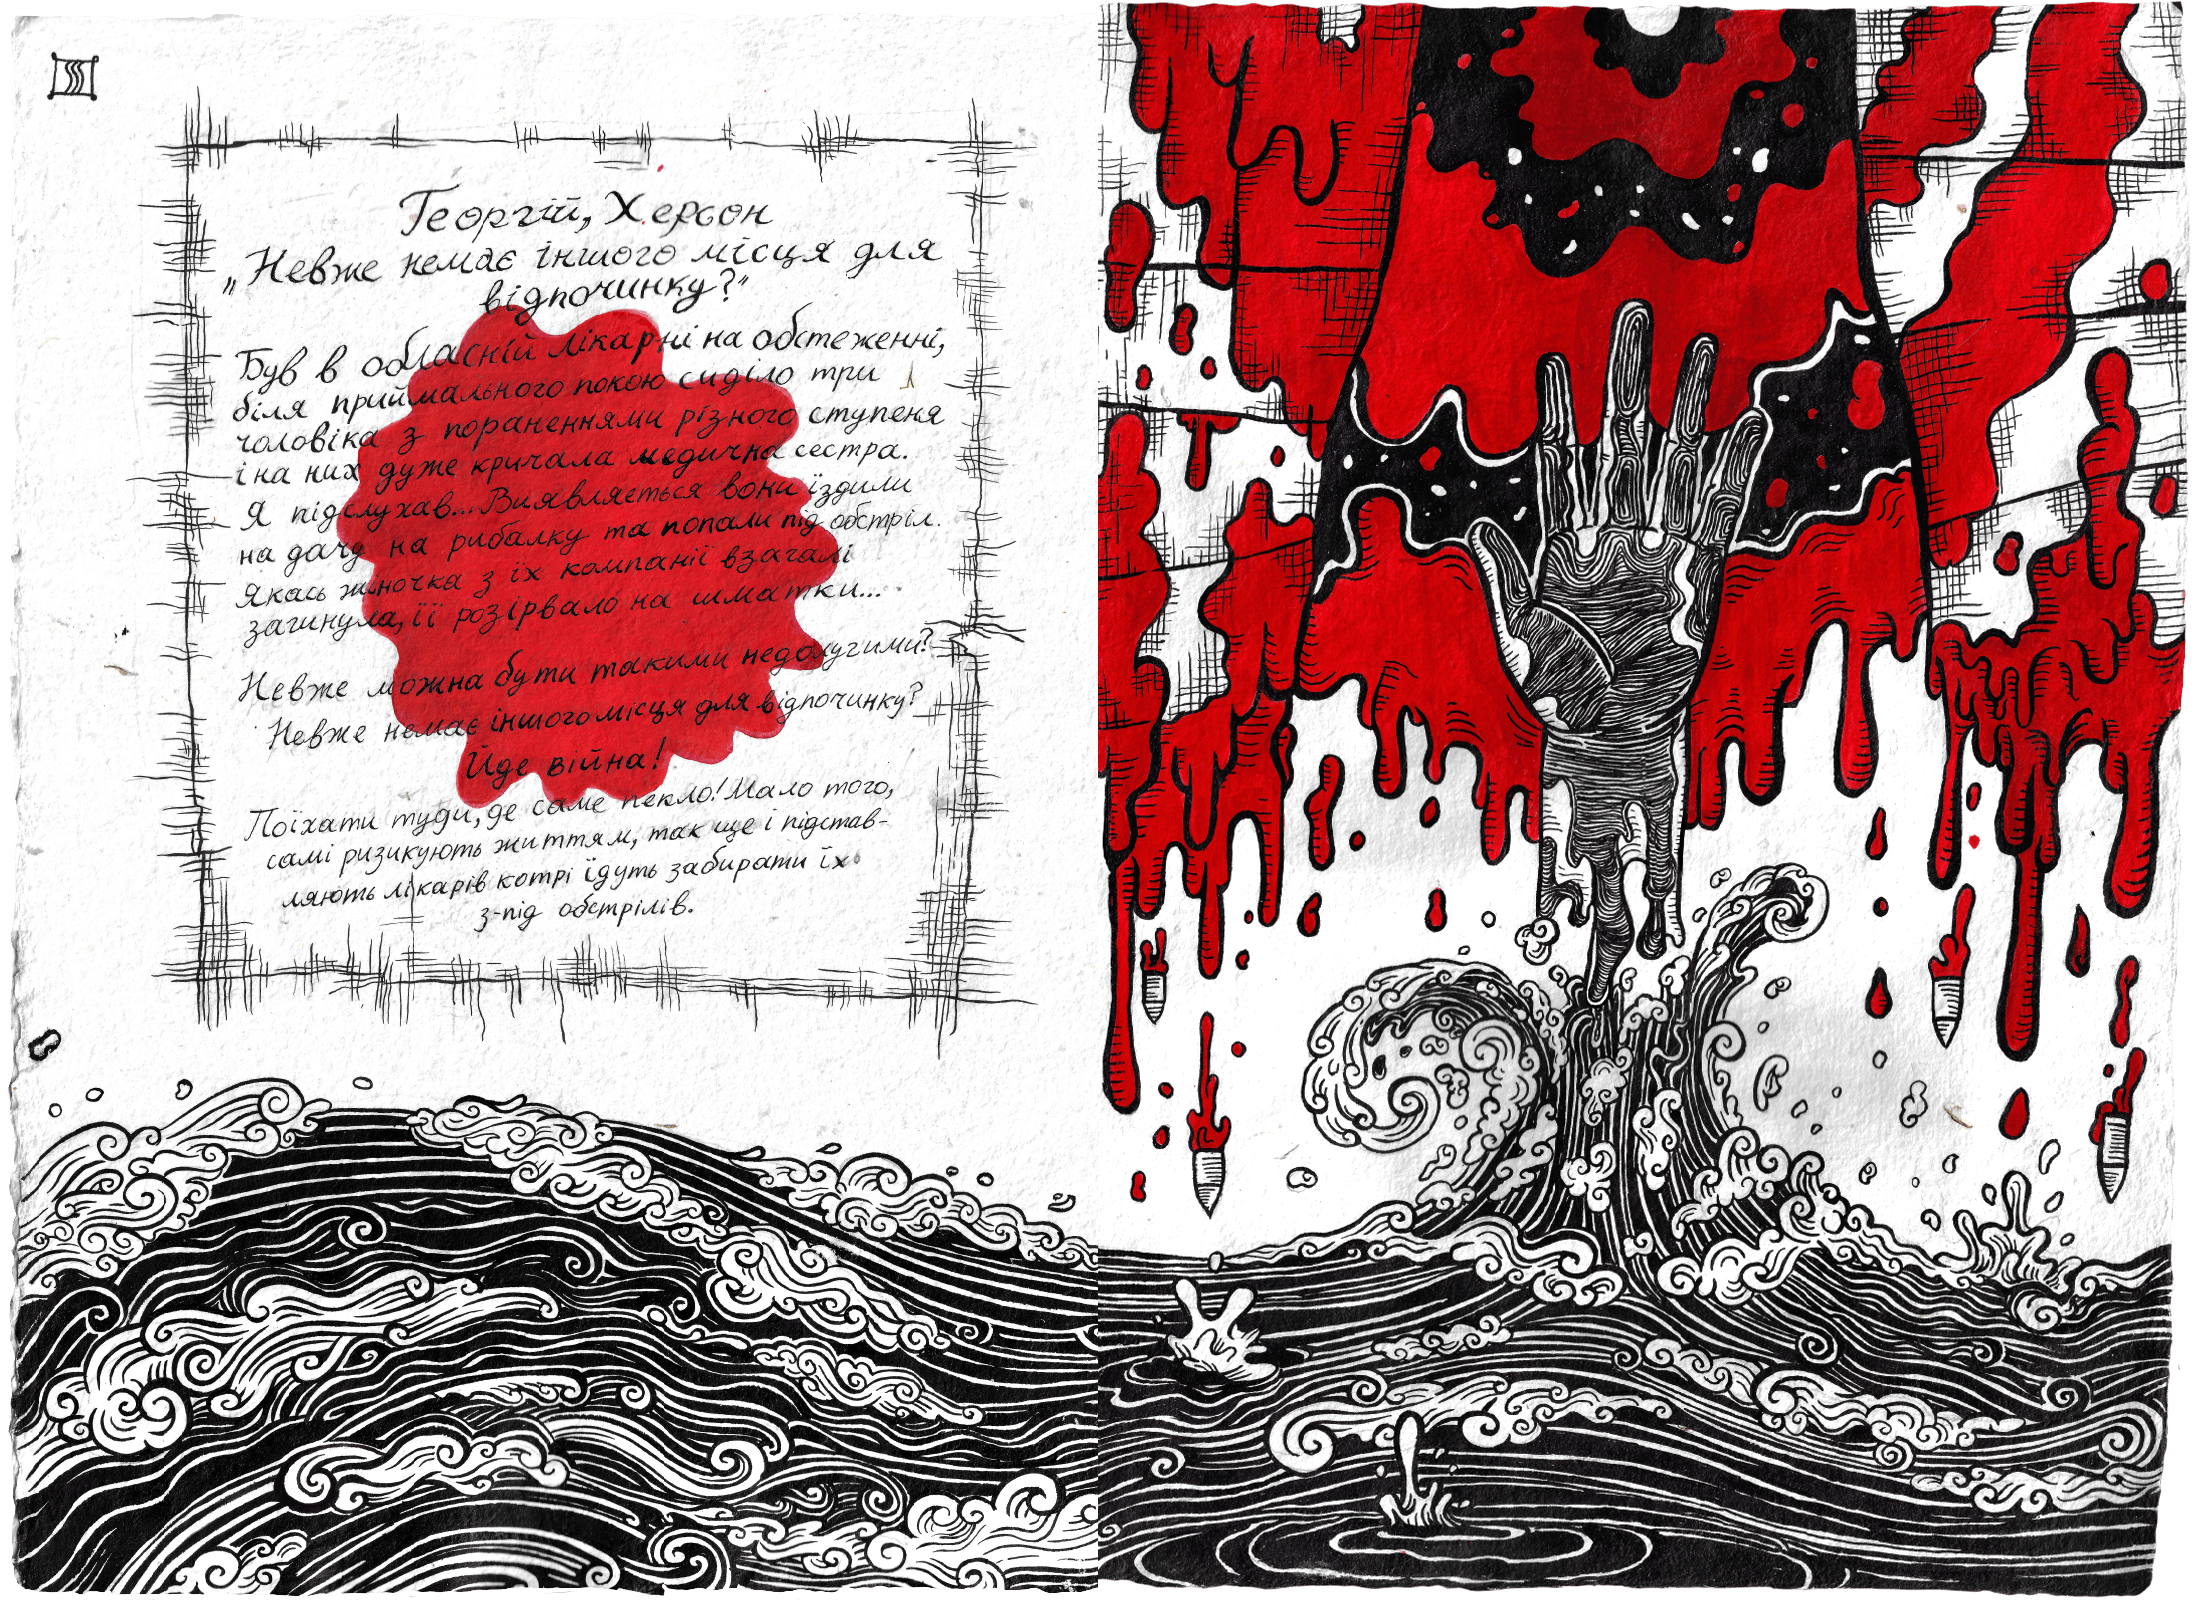 Георгій, Херсон
„Невже немає іншого місця для
відпочинку?"
Був в обласній лікарні на обстеженні,
біля приймального покою сиділо три
чоловіка з пораненнями різного ступеня
і на них дуже кричала медична сестра.
Я підслухав... Виявляється вони їздили
на дачу на рибалку та попали під обстріл.
Якась жіночка з їх компанії взагалі
загинула, її розірвало на шматки...
Невже можна бути такими недолугими?
Невже немає іншого місця для відпочинку?
Йде війна!
Поїхати туди, де саме пекло! Мало того,
самі ризикують життям, так ще і підстав-
ляють лікарів котрі їдуть забирати їх
з-під обстрілів.